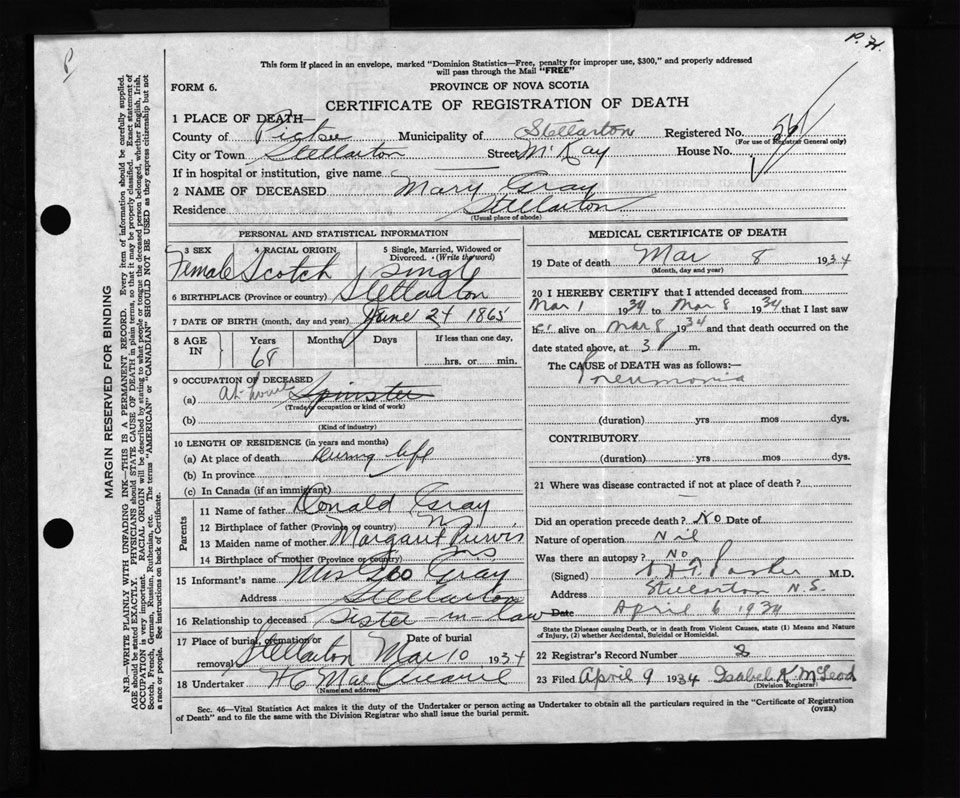 P
P. H.
This form if placed in an envelope, marked "Dominion Statistics—Free, penalty for improper use, $300," and properly addressed
will pass through the Mail "FREE"
FORM 6.
PROVINCE OF NOVA SCOTIA
CERTIFICATE OF REGISTRATION OF DEATH
1 PLACE OF DEATH—
County of Pictou Municipality of Stellarton Registered No.
(For use of Registrar General only)
City or Town Stellarton Street McKay House No.
If in hospital or institution, give name
2 NAME OF DECEASED Mary Gray
Residence Stellarton
(Usual place of abode)
MARGIN RESERVED FOR BINDING
N.B.—WRITE PLAINLY WITH UNFADING INK—THIS IS A PERMANENT RECORD. Every item of information should be carefully supplied.
AGE should be stated EXACTLY. PHYSICIANS should STATE CAUSE OF DEATH in plain terms, so that it may be properly classified. Exact statement of
OCCUPATION is very important. RACIAL ORIGIN will be described by stating to what people or tongue the deceased person belonged, whether English, Irish,
Scotch, French, German, Russian, Ruthenian, etc. The terms "AMERICAN" or "CANADIAN" SHOULD NOT BE USED as they express citizenship but not
a race or people. See instructions on back of Certificate.
PERSONAL AND STATISTICAL INFORMATION
3 SEX Female
4 RACIAL ORIGIN Scotch
5 Single, Married, Widowed or
Divorced. (Write the word)
Single
6 BIRTHPLACE (Province or country) Stellarton
7 DATE OF BIRTH (month, day and year) June 24 1865
8 AGE IN Years 68 Months Days If less than one day,
hrs. or min.
9 OCCUPATION OF DECEASED
(a) At home Spinster
(Trade occupation or kind of work)
(b)
(Kind of industry)
10 LENGTH OF RESIDENCE (in years and months)
(a) At place of death During life
(b) In province
(c) In Canada (if an immigrant)
Parents
11 Name of father Donald Gray
12 Birthplace of father (Province or country) N.S.
13 Maiden name of mother Margaret Purvis
14 Birthplace of mother (Province or country) N.S
15 Informant's name Mrs Geo Gray
Address Stellarton
16 Relationship to deceased Sister-in-law
17 Place of burial, cremation or Date of burial
removal Stellarton Mar 10 1934
18 Undertaker H C Mac
(Name and address)
MEDICAL CERTIFICATE OF DEATH
19 Date of death Mar 8 1934
(Month, day and year)
20 I HEREBY CERTIFY that I attended deceased from
Mar 1 1934 to Mar 8 1934 that I last saw
alive on Mar 8 1934 and that death occurred on
date stated above, at 3 P m.
The CAUSE OF DEATH was as follows:—
Pneumonia
(duration) yrs mos dys.
CONTRIBUTORY
(duration) yrs mos dys.
21 Where was disease contracted if not at place of death?
Did an operation precede death? No Date of
Nature of operation Nil
Was there an autopsy? No
(Signed) Parker M.D.
Address Stellarton N.S.
Date April 6 1934
State the Disease causing Death, or in death from Violent Causes, state (1) Means and Nature
of Injury, (2) whether Accidental, Suicidal or Homicidal.
22 Registrar's Record Number
23 Filed April 9 1934 Isabel K McLeod
(Division Registrar)
Sec. 46—Vital Statistics Act makes it the duty of the Undertaker or person acting as Undertaker to obtain all the particulars required in the "Certificate of Registration
of Death" and to file the same with the Division Registrar who shall issue the burial permit.
(OVER)